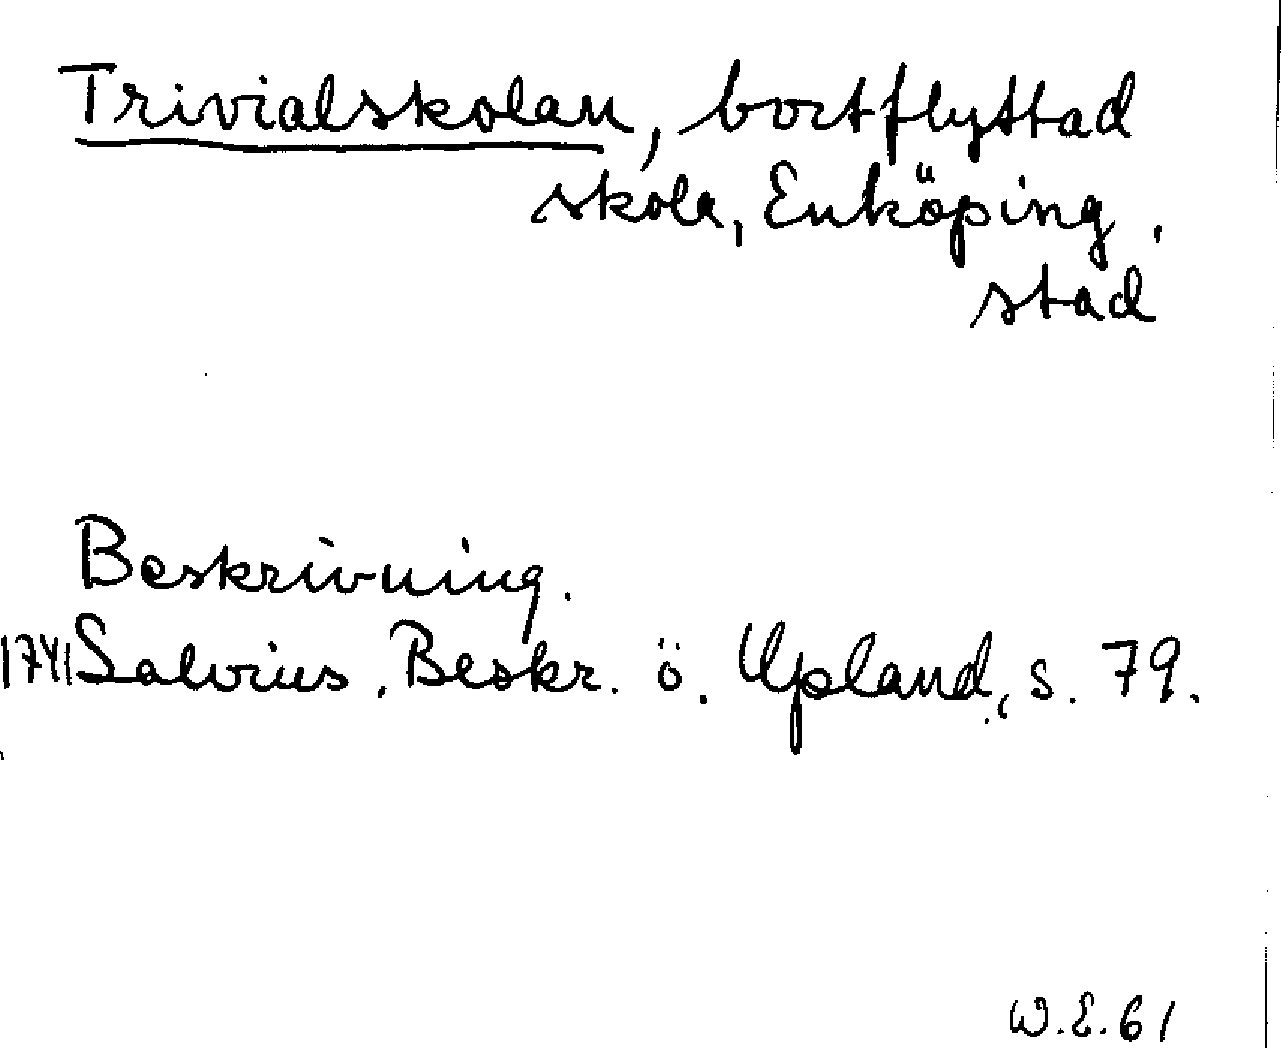 Trivialskolan, bortflyttad
skola, Enköping,
stad
Beskrivning.
1741 Salvius, Beskr. ö. Upland, s. 79.
W.E. 61